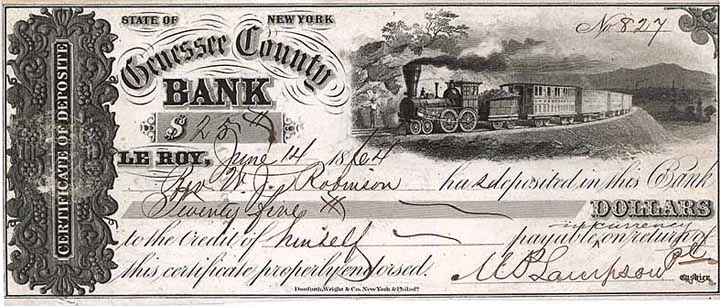 STATE OF NEW YORK
No 827
Genessee County
BANK
$ 25
LE ROY, June 14 1864
W. J. Robinson has deposited in this Bank
Twenty five DOLLARS
in currency
to the credit of himself payable on return of
this certificate properly endorsed. M P Lampson Pt
Cashier
CERTIFICATE OF DEPOSITE
Danforth, Wright & Co. New York & Philada